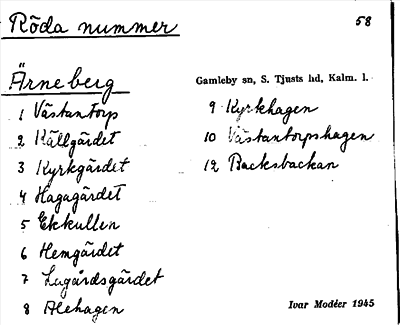 Röda nummer 58
Ärneberg
Gamleby sn, S. Tjusts hd, Kalm. l.
1 Västantorp
2 Källgärdet
3 Kyrkgärdet
4 Hagagärdet
5 Ekkullen
6 Hemgärdet
7 Lagårdsgärdet
8 Alehagen
9 Kyrkhagen
10 Västantorpshagen
12 Backsbackan
Ivar Modéer 1945